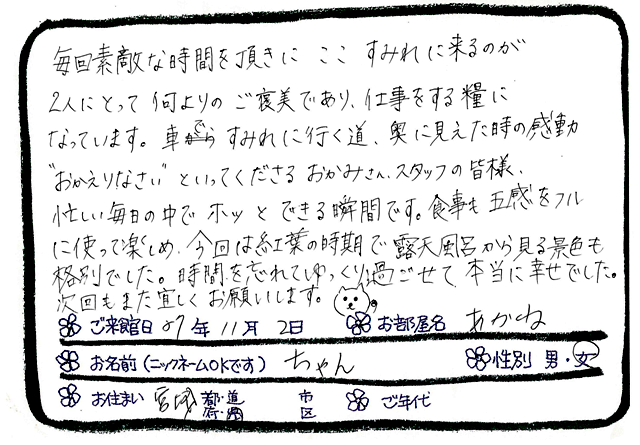 毎回素敵な時間を頂きに ここ すみれに来るのが
2人にとって 何よりの ご褒美であり、仕事をする糧に
なっています。車で すみれに行く道、奥に見えた時の感動
"おかえりなさい" といってくださる おかみさん、スタッフの皆様、
忙しい毎日の中で ホッと できる瞬間です。食事も 五感をフル
に使って楽しめ、今回は紅葉の時期で 露天風呂から見る景色も
格別でした。時間を忘れてゆっくり過ごせて 本当に幸せでした。
次回もまた宜しくお願いします。
ご来館日 27年 11月 2日 お部屋名 あかね
お名前(ニックネームOKです) ちゃん 性別 男・女
お住まい 宮城 都・道 府・県 市 区 ご年代